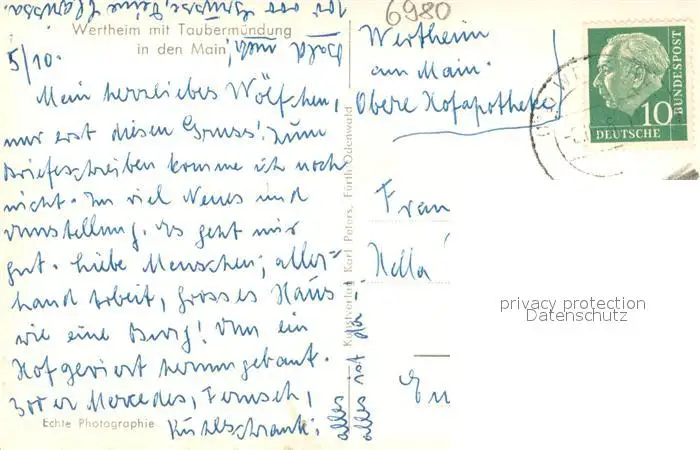 6980
Wertheim mit Taubermündung
in den Main
5/10.
Mein herzliebes Wölfchen,
nur erst diesen Gruss! Zum
Briefeschreiben komme ich noch
nicht. Zu viel Neues und
Umstellung. Es geht mir
gut. Liebe Menschen, aller=
hand Arbeit, grosses Haus
wie eine Burg! Um ein
Hofgeviert herumgebaut.
300er Mercedes, Fernseh,
Kühlschrank:
alles
alles ist da.
Bald mehr!
100 000 Grüsse, Deine
Echte Photographie
Kunstverlag Karl Peters, Fürth Odenwald
Wertheim
am Main.
Obere Hofapotheke!
DEUTSCHE
BUNDESPOST
10
Frau
Hella
privacy protection
Datenschutz